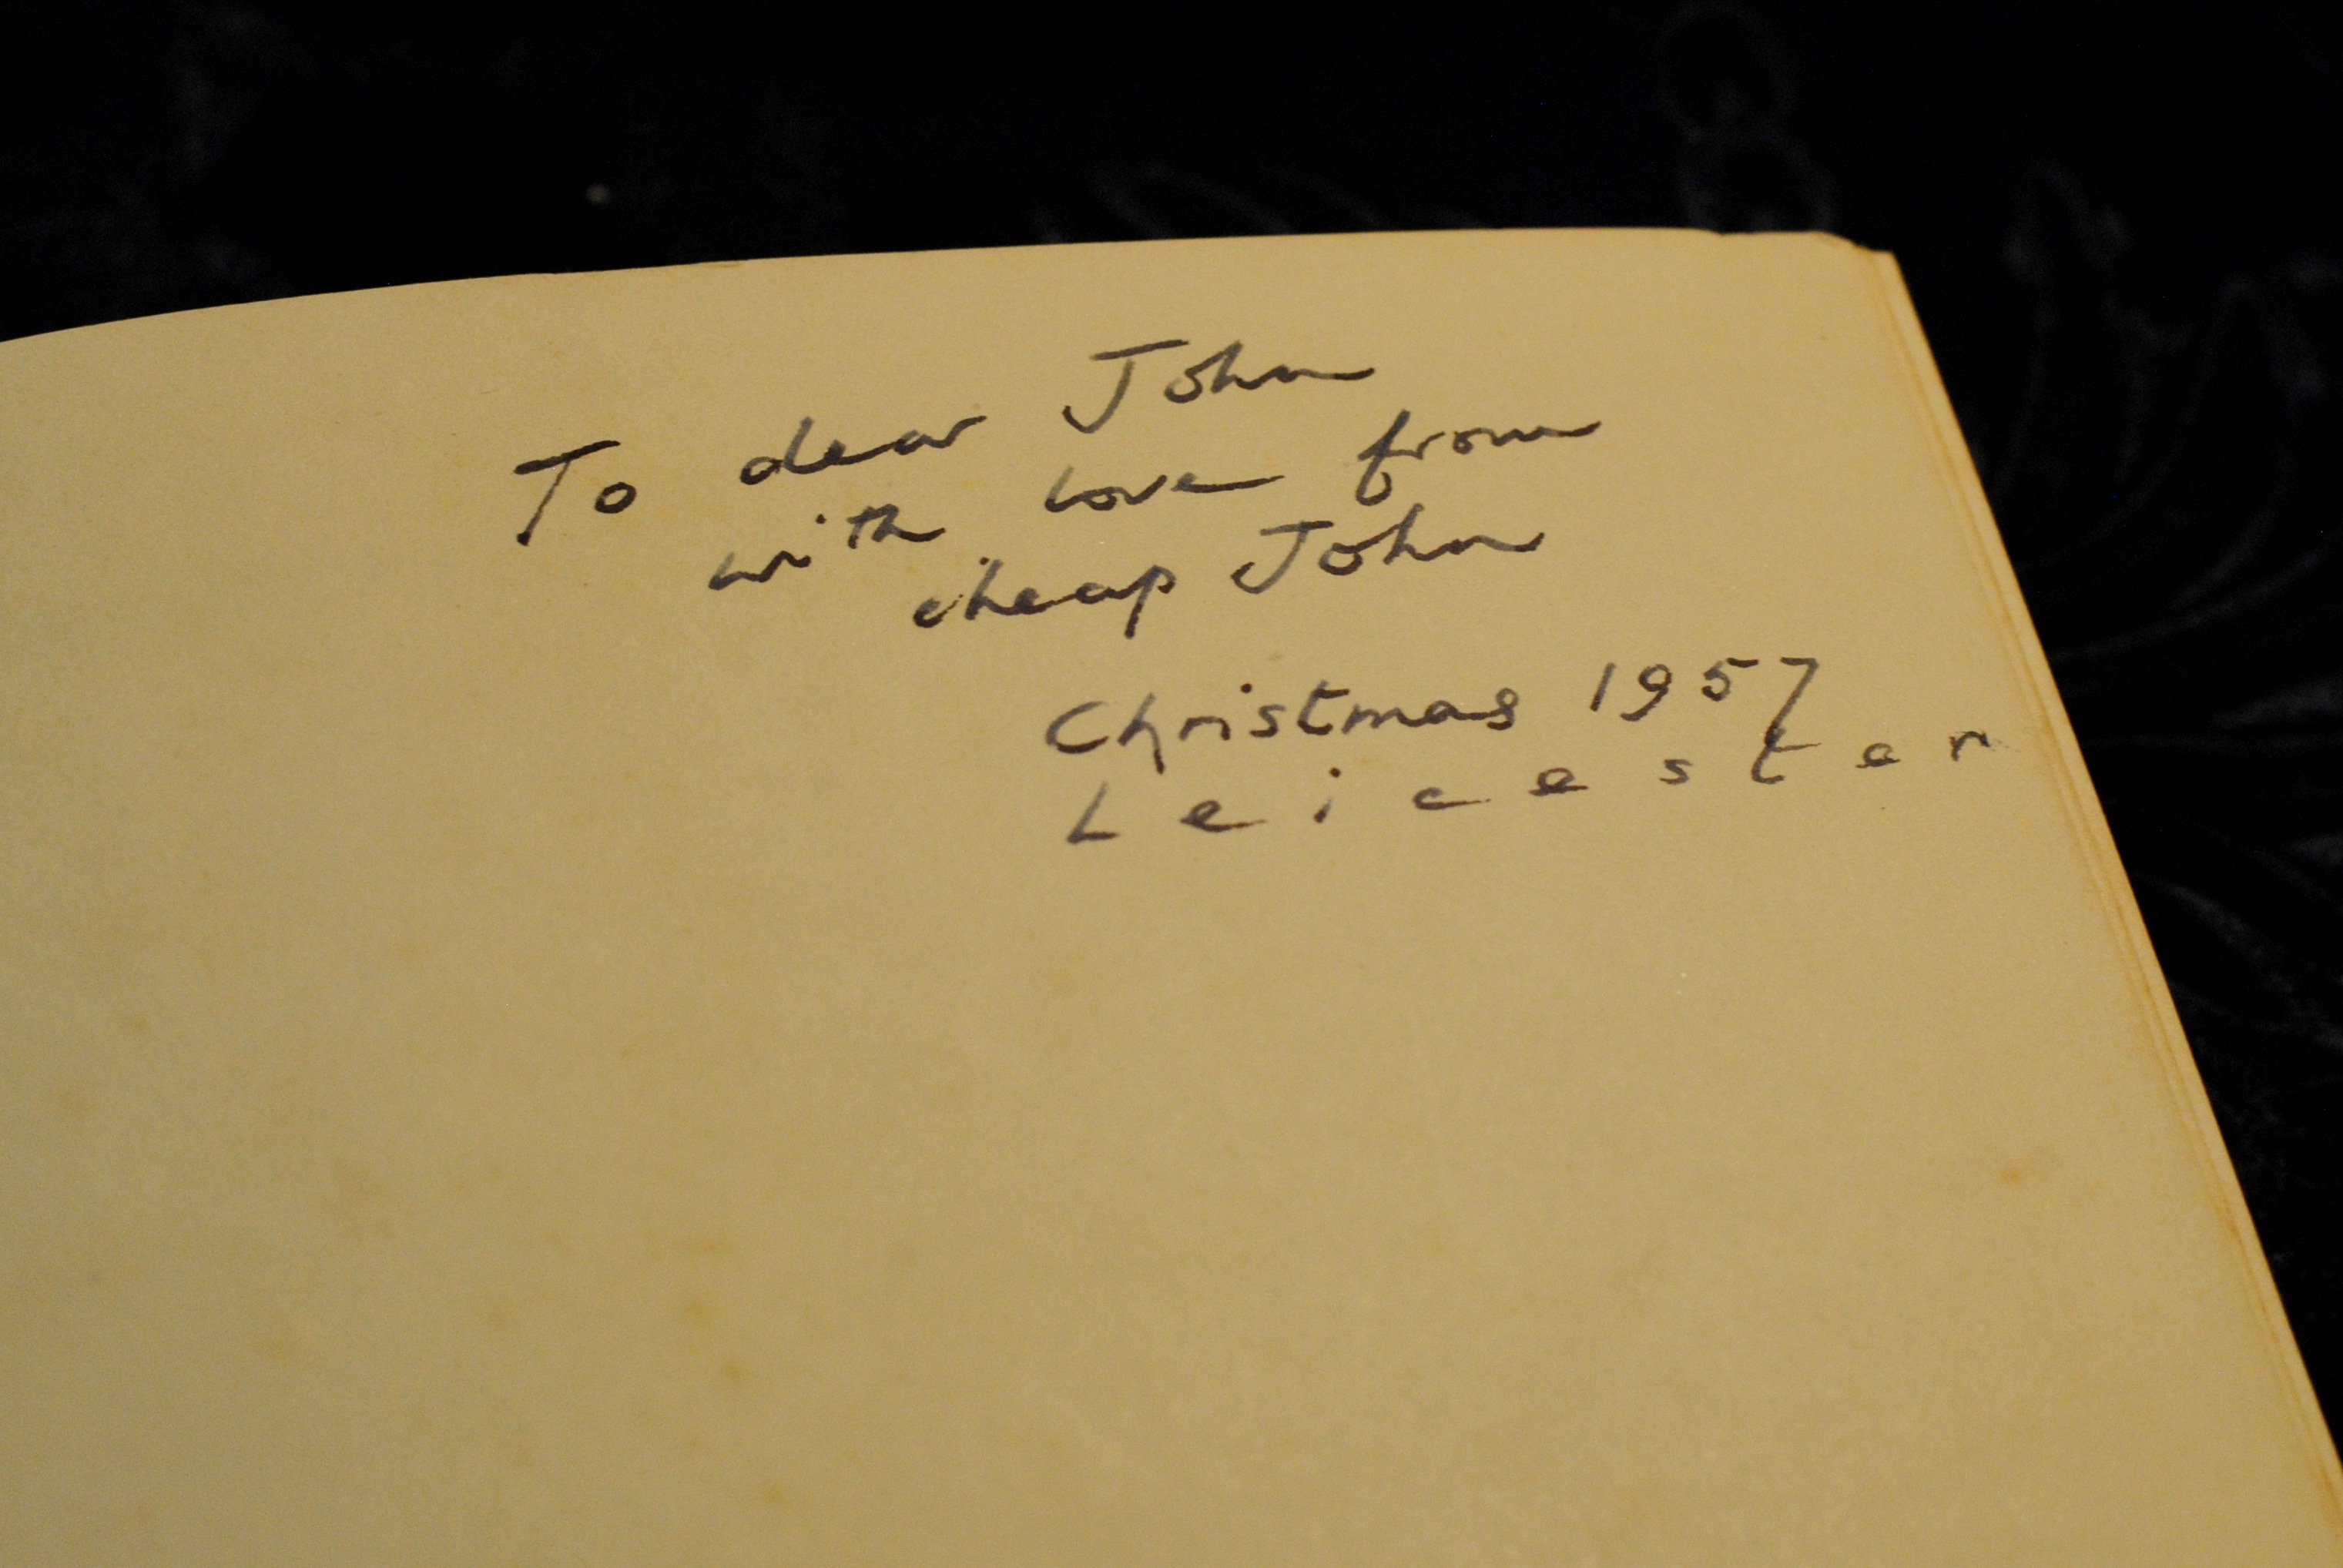 To dear John
with love from
cheap John
Christmas 1957
Leicester